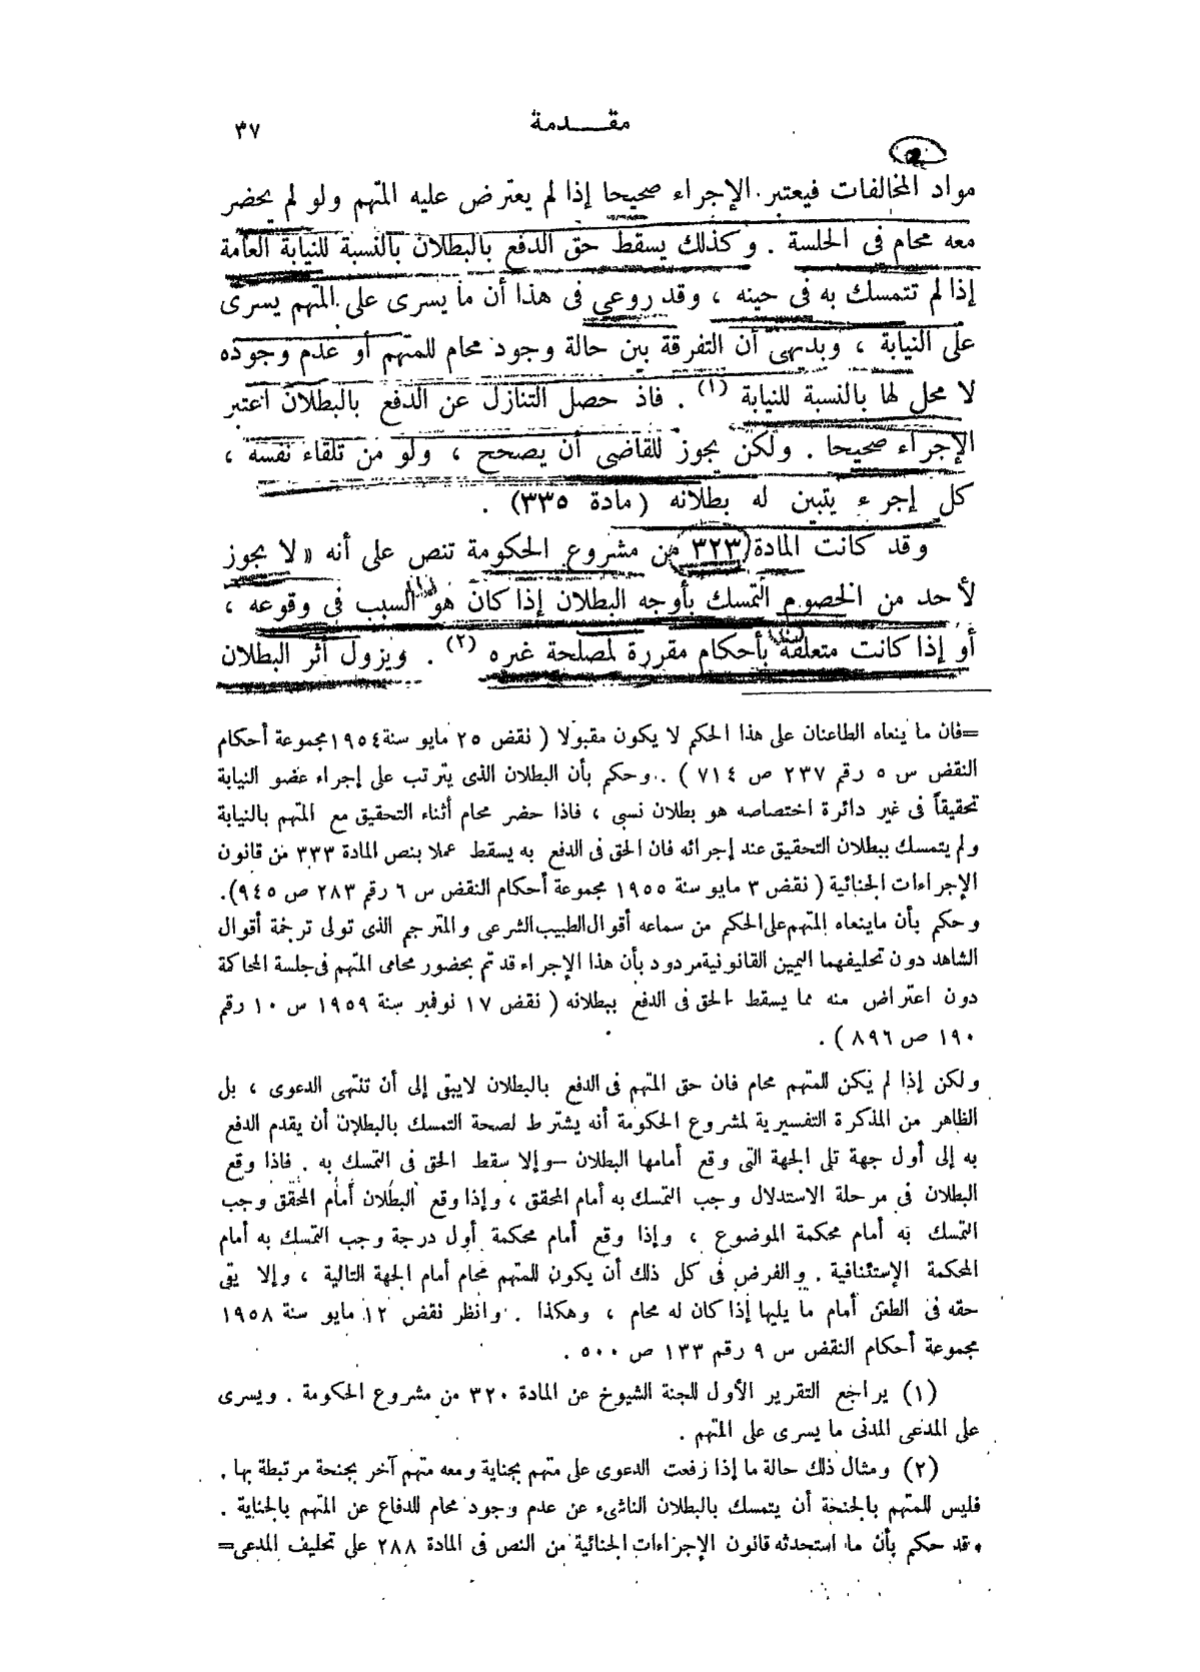 مقدمة ٣٧
مواد المخالفات فيعتبر الإجراء صحيحا إذا لم يعترض عليه المتهم ولو لم يحضر
معه محام فى الجلسة . وكذلك يسقط حق الدفع بالبطلان بالنسبة للنيابة العامة
إذا لم تتمسك به فى حينه ، وقد روعى فى هذا أن ما يسرى على المتهم يسرى
على النيابة ، وبديهى أن التفرقة بين حالة وجود محام للمتهم أو عدم وجوده
لا محل لها بالنسبة للنيابة (١) . فاذ حصل التنازل عن الدفع بالبطلان اعتبر
الإجراء صحيحا . ولكن يجوز للقاضى أن يصحح ، ولو من تلقاء نفسه ،
كل إجرء يتبين له بطلانه (مادة ٣٣٥) .
وقد كانت المادة (٣٢٣ من مشروع الحكومة تنص على أنه « لا يجوز
لأحد من الخصوم التمسك بأوجه البطلان إذا كان هو السبب فى وقوعه ،
أو إذا كانت متعلقة بأحكام مقررة لمصلحة غيره (٢) . ويزول أثر البطلان
=فان ما ينعاه الطاعنان على هذا الحكم لا يكون مقبولا ( نقض ٢٥ مايو سنة ١٩٥٤ مجموعة أحكام
النقض س ٥ رقم ٢٣٧ ص ٧١٤ ) . وحكم بأن البطلان الذى يترتب على إجراء عضو النيابة
تحقيقاً فى غير دائرة اختصاصه هو بطلان نسبى ، فاذا حضر محام أثناء التحقيق مع المتهم بالنيابة
ولم يتمسك ببطلان التحقيق عند إجرائه فان الحق فى الدفع به يسقط عملا بنص المادة ٣٣٣ من قانون
الإجراءات الجنائية ( نقض ٣ مايو سنة ١٩٥٥ مجموعة أحكام النقض س ٦ رقم ٢٨٣ ص ٩٤٥).
وحكم بأن ماينعاه المتهم على الحكم من سماعه أقوال الطبيب الشرعى والمترجم الذى تولى ترجمة أقوال
الشاهد دون تحليفهما اليمين القانونية مردود بأن هذا الإجراء قد تم بحضور محامى المتهم فى جلسة المحاكمة
دون اعتراض منه مما يسقط الحق فى الدفع ببطلانه ( نقض ١٧ نوفمبر سنة ١٩٥٩ س ١٠ رقم
١٩٠ ص ٨٩٦ ) .
ولكن إذا لم يكن للمتهم محام فان حق المتهم فى الدفع بالبطلان لايبقى إلى أن تنتهى الدعوى ، بل
الظاهر من المذكرة التفسيرية لمشروع الحكومة أنه يشترط لصحة التمسك بالبطلان أن يقدم الدفع
به إلى أول جهة تلى الجهة التى وقع أمامها البطلان –وإلا سقط الحق فى التمسك به . فاذا وقع
البطلان فى مرحلة الاستدلال وجب التمسك به أمام المحقق ، وإذا وقع البطلان أمام المحقق وجب
التمسك به أمام محكمة الموضوع ، وإذا وقع أمام محكمة أول درجة وجب التمسك به أمام
المحكمة الإستئنافية . والفرض فى كل ذلك أن يكون للمتهم محام أمام الجهة التالية ، وإلا بقى
حقه فى الطعن أمام ما يليها إذا كان له محام ، وهكذا . وانظر نقض ١٢ مايو سنة ١٩٥٨
مجموعة أحكام النقض س ٩ رقم ١٣٣ ص ٥٠٠ .
(١) يراجع التقرير الأول للجنة الشيوخ عن المادة ٣٢٠ من مشروع الحكومة . ويسرى
على المدعى المدنى ما يسرى على المتهم .
(٢) ومثال ذلك حالة ما إذا رفعت الدعوى على متهم بجناية ومعه متهم آخر بجنحة مرتبطة بها .
فليس للمتهم بالجنحة أن يتمسك بالبطلان الناشىء عن عدم وجود محام للدفاع عن المتهم بالجناية .
وقد حكم بأن ما استحدثه قانون الإجراءات الجنائية من النص فى المادة ٢٨٨ على تحليف المدعى=